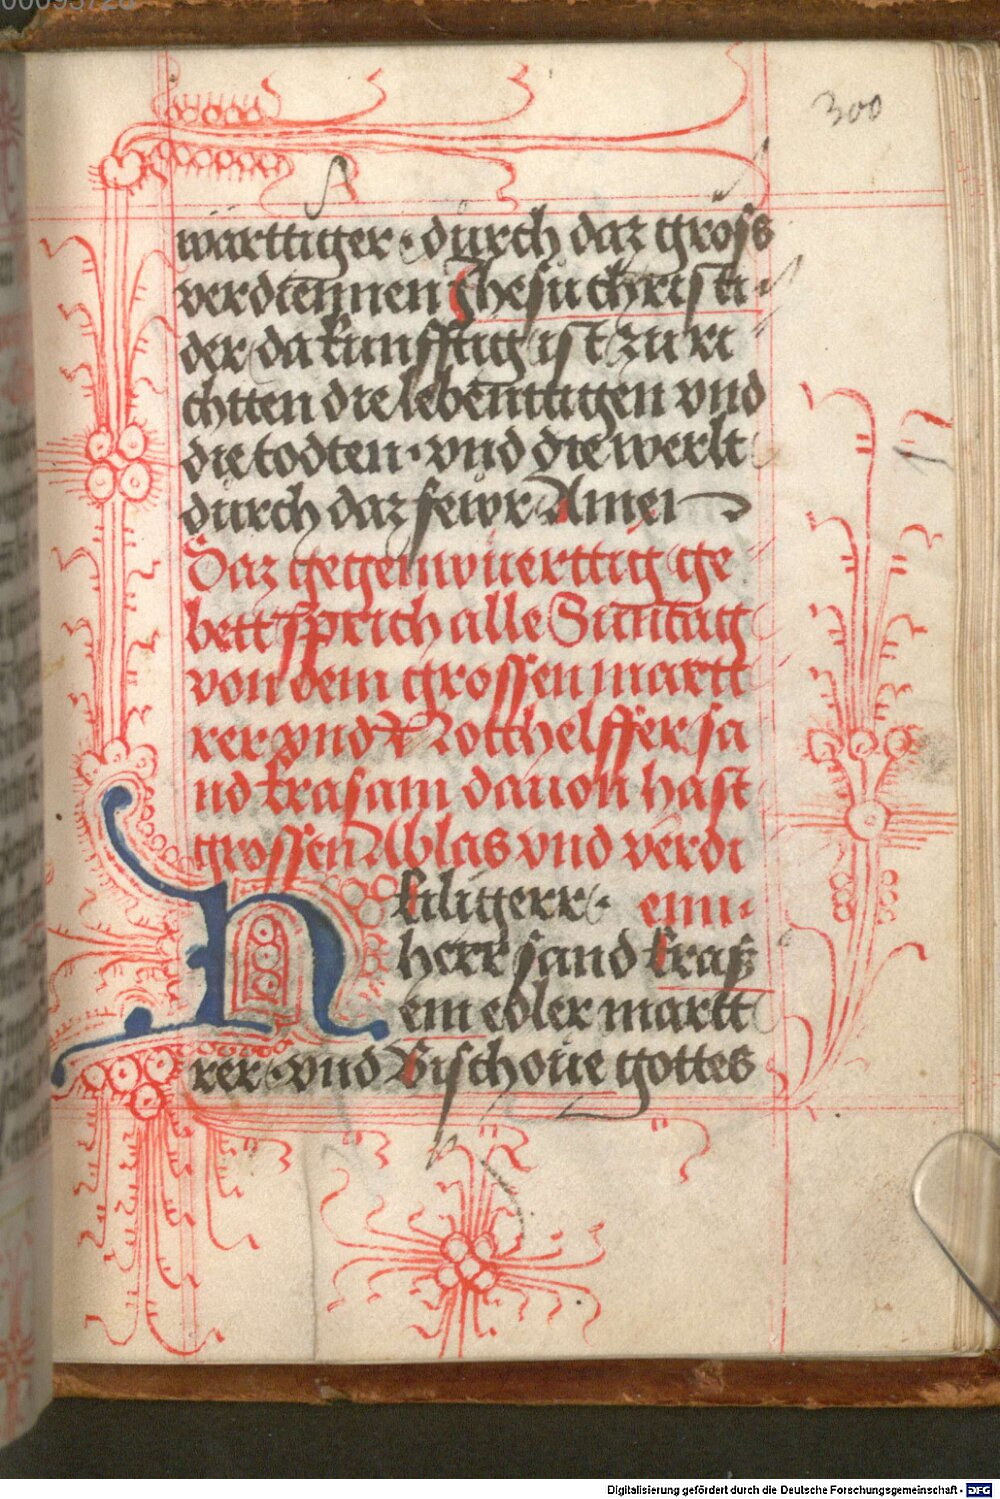 300
wärttiger · durch daz gross
verdiennen Jhesu christi ·
der da kunfftig ist zu ri
chtten die lebenttigen vnd
die todten · vnd die werlt
durch daz fewr Amen
Daz gegenwuerttig ge
bett sprich alle Suntag
von dem grossen martt
rer vnd Notthelffer sa
nd Erasam dauon hast
grossen Ablas vnd verdi
enn ·
Heiligerr ·
herr sand Eraß
em edler martt
rer · vnd Bischoue gottes
Digitalisierung gefördert durch die Deutsche Forschungsgemeinschaft - DFG